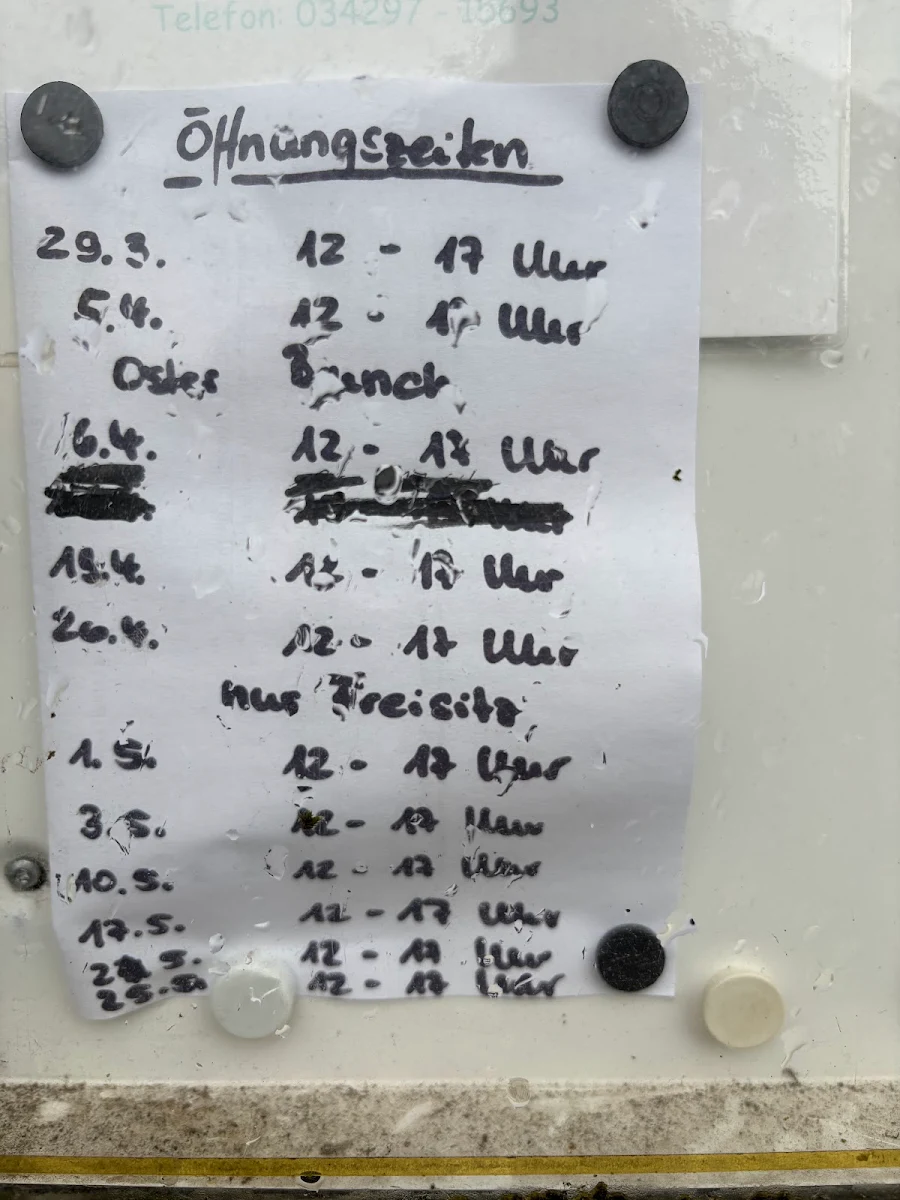 Telefon: 034297 - 16693
Öffnungszeiten
29.3. 12 - 17 Uhr
5.4. 12 - 17 Uhr
Oster Brunch
6.4. 12 - 17 Uhr
19.4. 12 - 17 Uhr
26.4. 12 - 17 Uhr
nur Freisitz
1.5. 12 - 17 Uhr
3.5. 12 - 17 Uhr
10.5. 12 - 17 Uhr
17.5. 12 - 17 Uhr
5. 12 - 17 Uhr
25.5. 12 - 17 Uhr